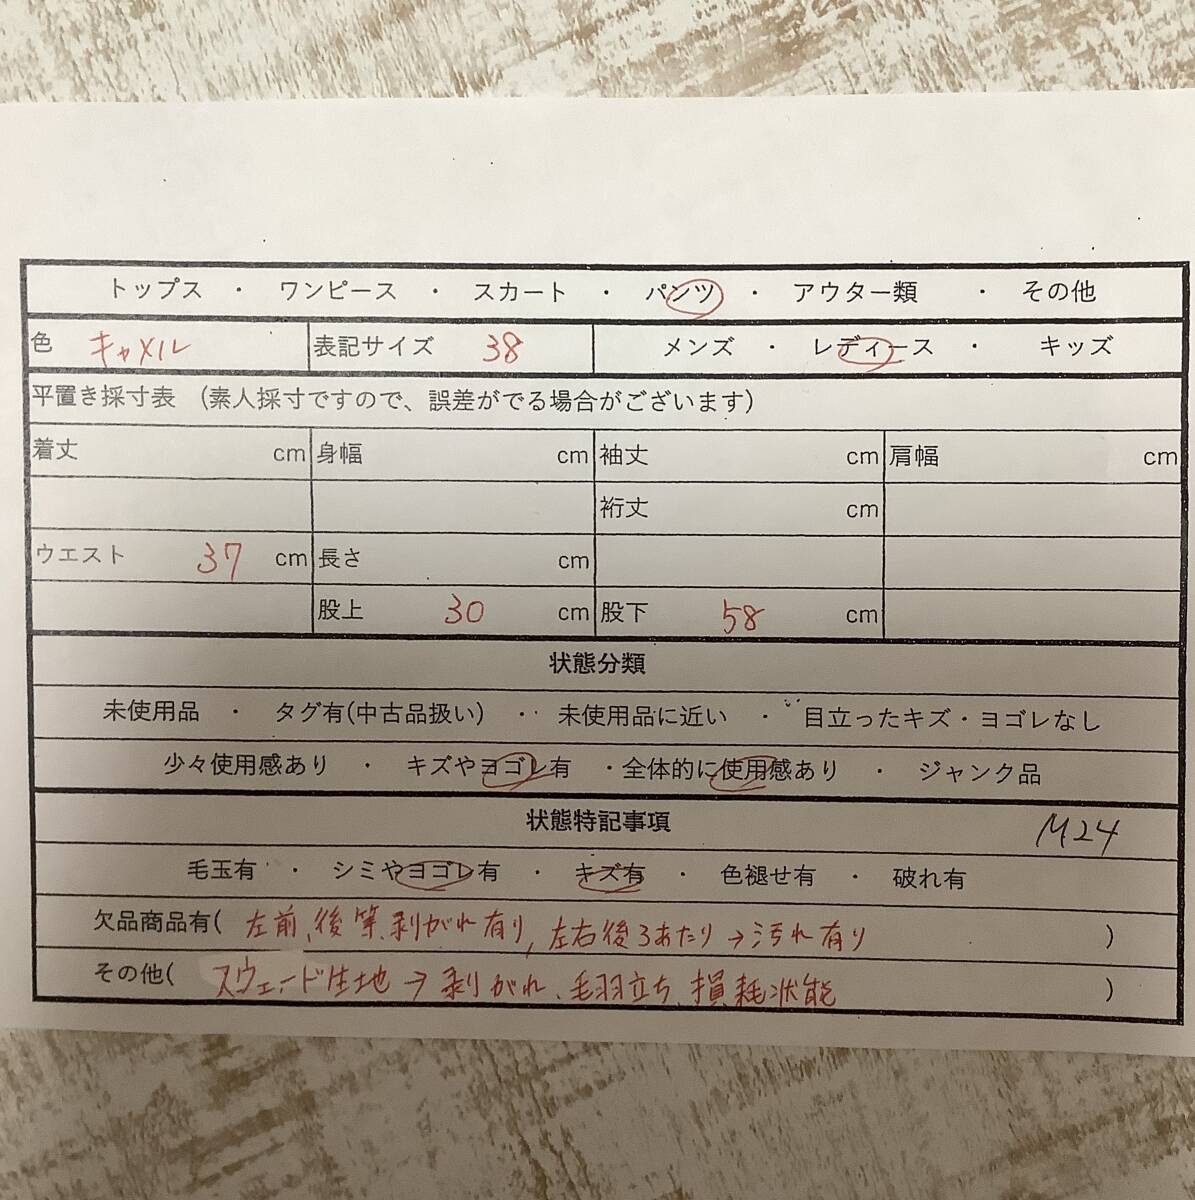 トップス ・ ワンピース ・ スカート ・ パンツ ・ アウター類 ・ その他
色 キャメル 表記サイズ 38 メンズ ・ レディース ・ キッズ
平置き採寸表 (素人採寸ですので、誤差がでる場合がございます)
着丈 cm 身幅 cm 袖丈 cm 肩幅 cm
裄丈 cm
ウエスト 37 cm 長さ cm
股上 30 cm 股下 58 cm
状態分類
未使用品 ・ タグ有(中古品扱い) ・ 未使用品に近い ・ 目立ったキズ・ヨゴレなし
少々使用感あり ・ キズやヨゴレ有 ・全体的に使用感あり ・ ジャンク品
状態特記事項 M24
毛玉有 ・ シミやヨゴレ有 ・ キズ有 ・ 色褪せ有 ・ 破れ有
欠品商品有( 左前、後等、剥がれ有り、左右後ろあたり→汚れ有り )
その他( スウェード生地→剥がれ、毛羽立ち、損耗状態 )